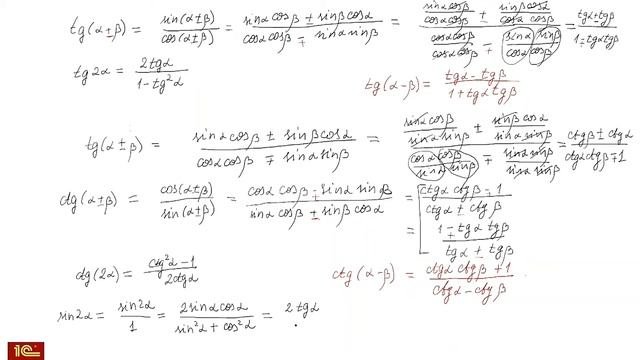 tg(α±β) = sin(α±β)/cos(α±β) = (sinα cosβ ± sinβ cosα)/(cosα cosβ ∓ sinα sinβ) = (sinα cosβ/cosα cosβ ± sinβ cosα/cosα cosβ)/(cosα cosβ/cosα cosβ ∓ sinα sinβ/cosα cosβ) = (tgα ± tgβ)/(1 ∓ tgα tgβ)
tg2α = 2tgα/(1 - tg²α)
tg(α-β) = (tgα - tgβ)/(1 + tgα tgβ)
tg(α±β) = (sinα cosβ ± sinβ cosα)/(cosα cosβ ∓ sinα sinβ) = (sinα cosβ/sinα sinβ ± sinβ cosα/sinα sinβ)/(cosα cosβ/sinα sinβ ∓ sinα sinβ/sinα sinβ) = (ctgβ ± ctgα)/(ctgα ctgβ ∓ 1)
ctg(α±β) = cos(α±β)/sin(α±β) = (cosα cosβ ∓ sinα sinβ)/(sinα cosβ ± sinβ cosα) = (ctgα ctgβ ∓ 1)/(ctgα ± ctgβ)
= (1 ∓ tgα tgβ)/(tgα ± tgβ)
ctg(2α) = (ctg²α - 1)/2ctgα
ctg(α-β) = (ctgα ctgβ + 1)/(ctgα - ctgβ)
sin2α = sin2α/1 = 2sinα cosα/(sin²α + cos²α) = 2tgα
1С